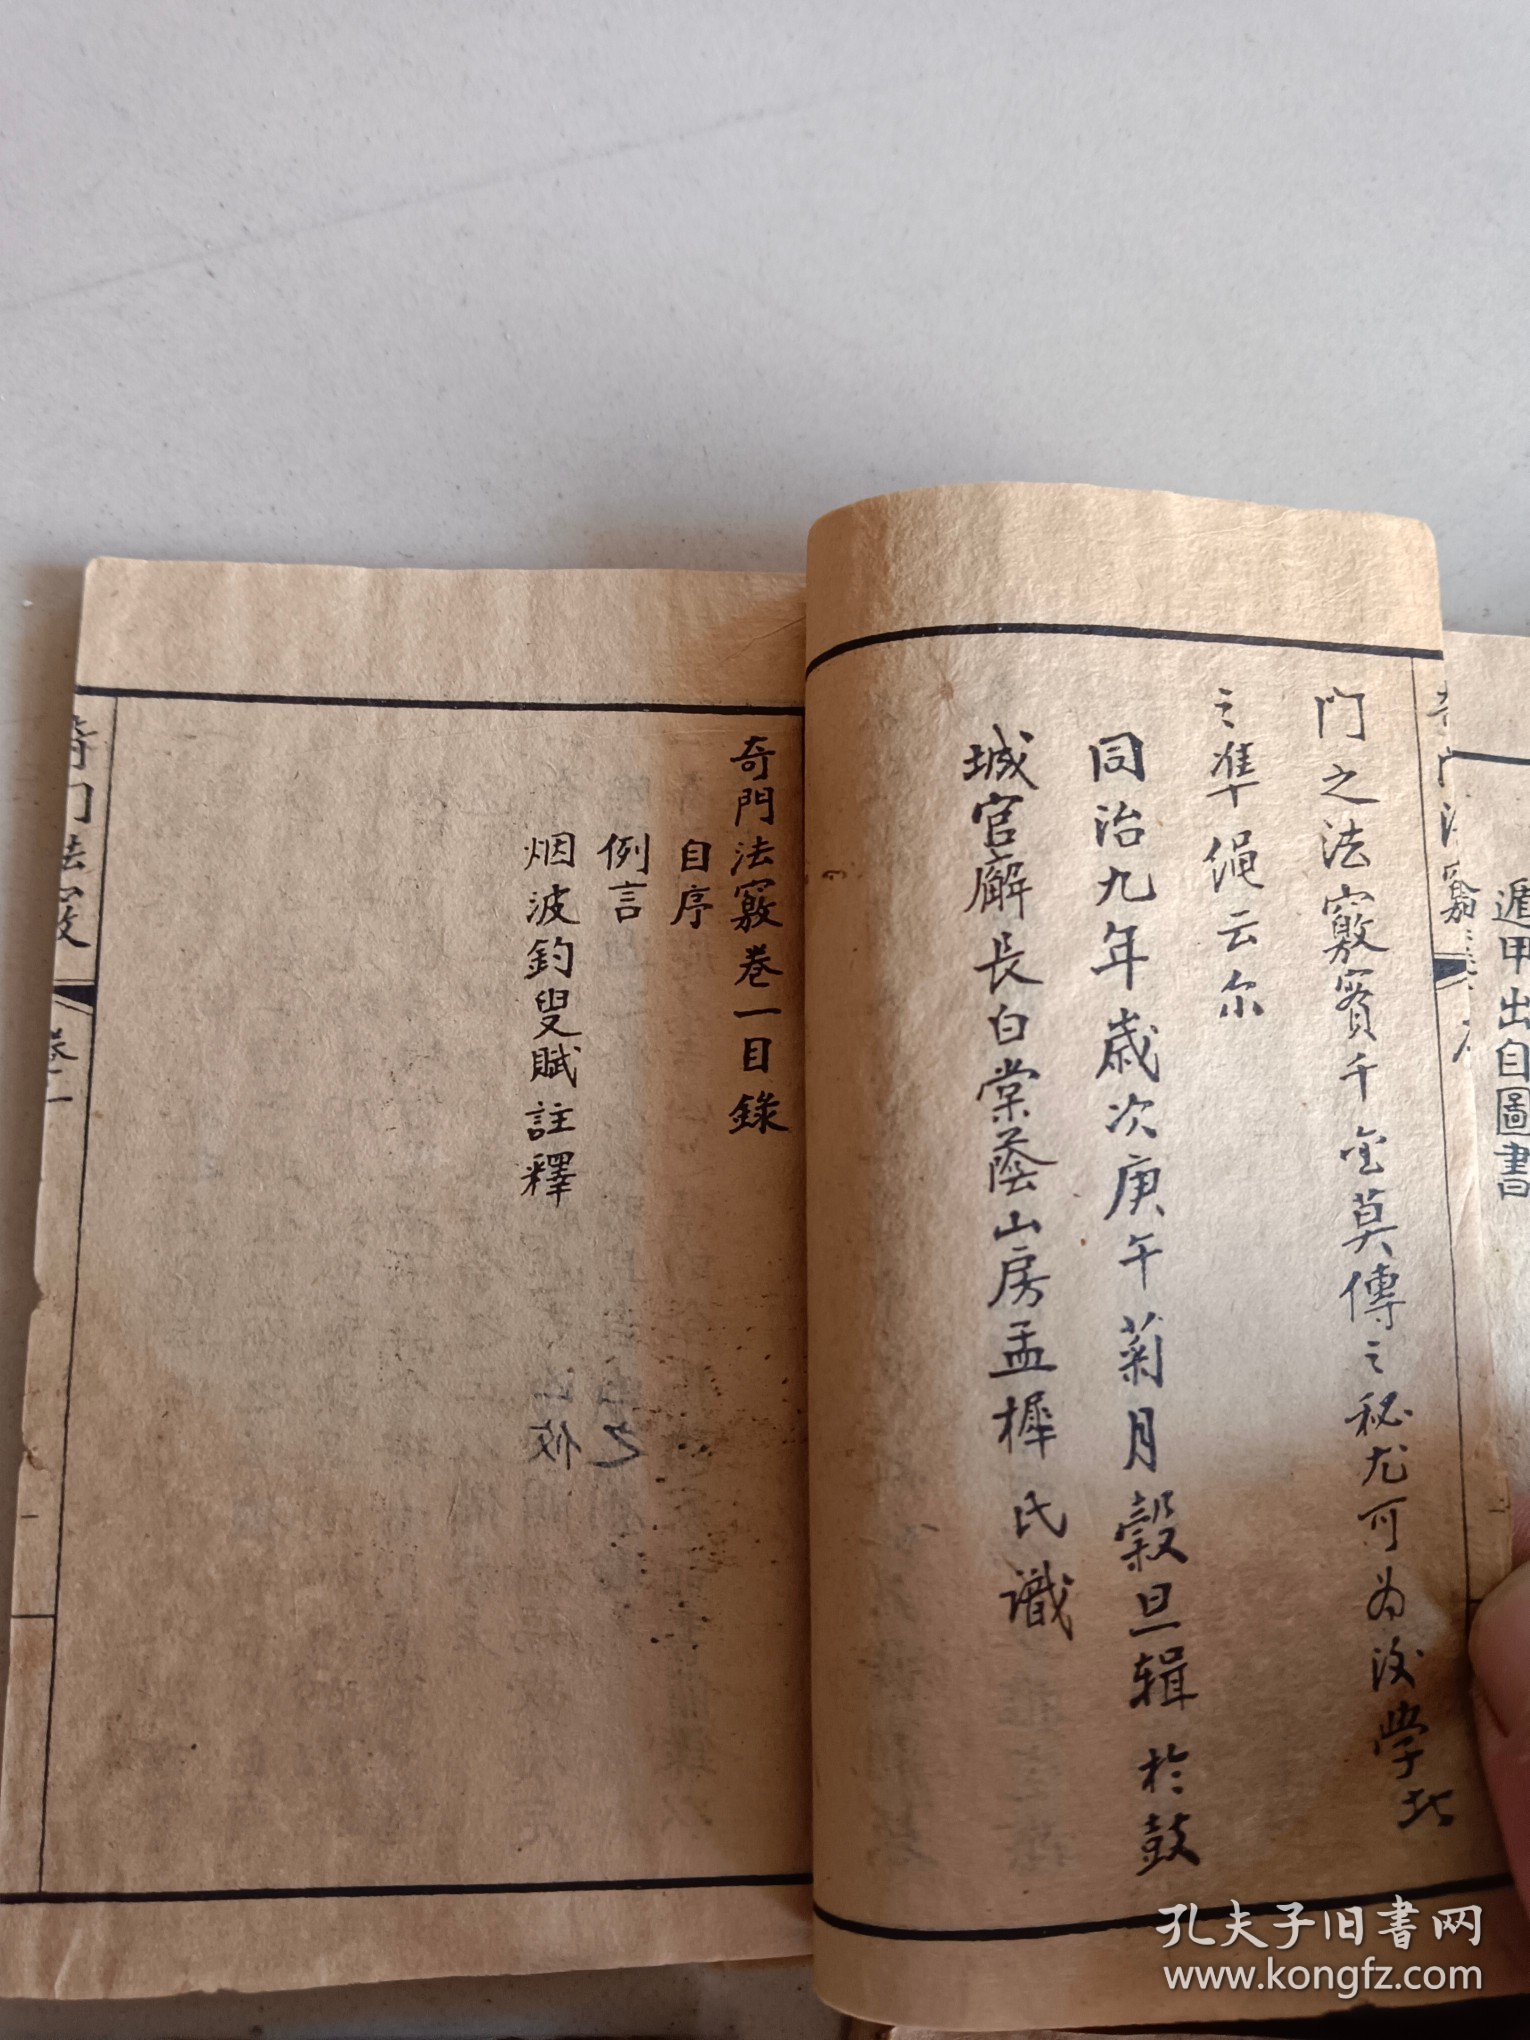 遁甲出自圖書
門之法竅實千金莫傳之秘尤可为後學北
之準绳云尔
同治九年歲次庚午菊月穀旦辑於鼓
城官廨長白棠蔭山房孟樨氏識
奇門法竅卷一目錄
自序
例言
烟波釣叟賦註釋
奇門法竅
卷一
孔夫子旧書网
www.kongfz.com